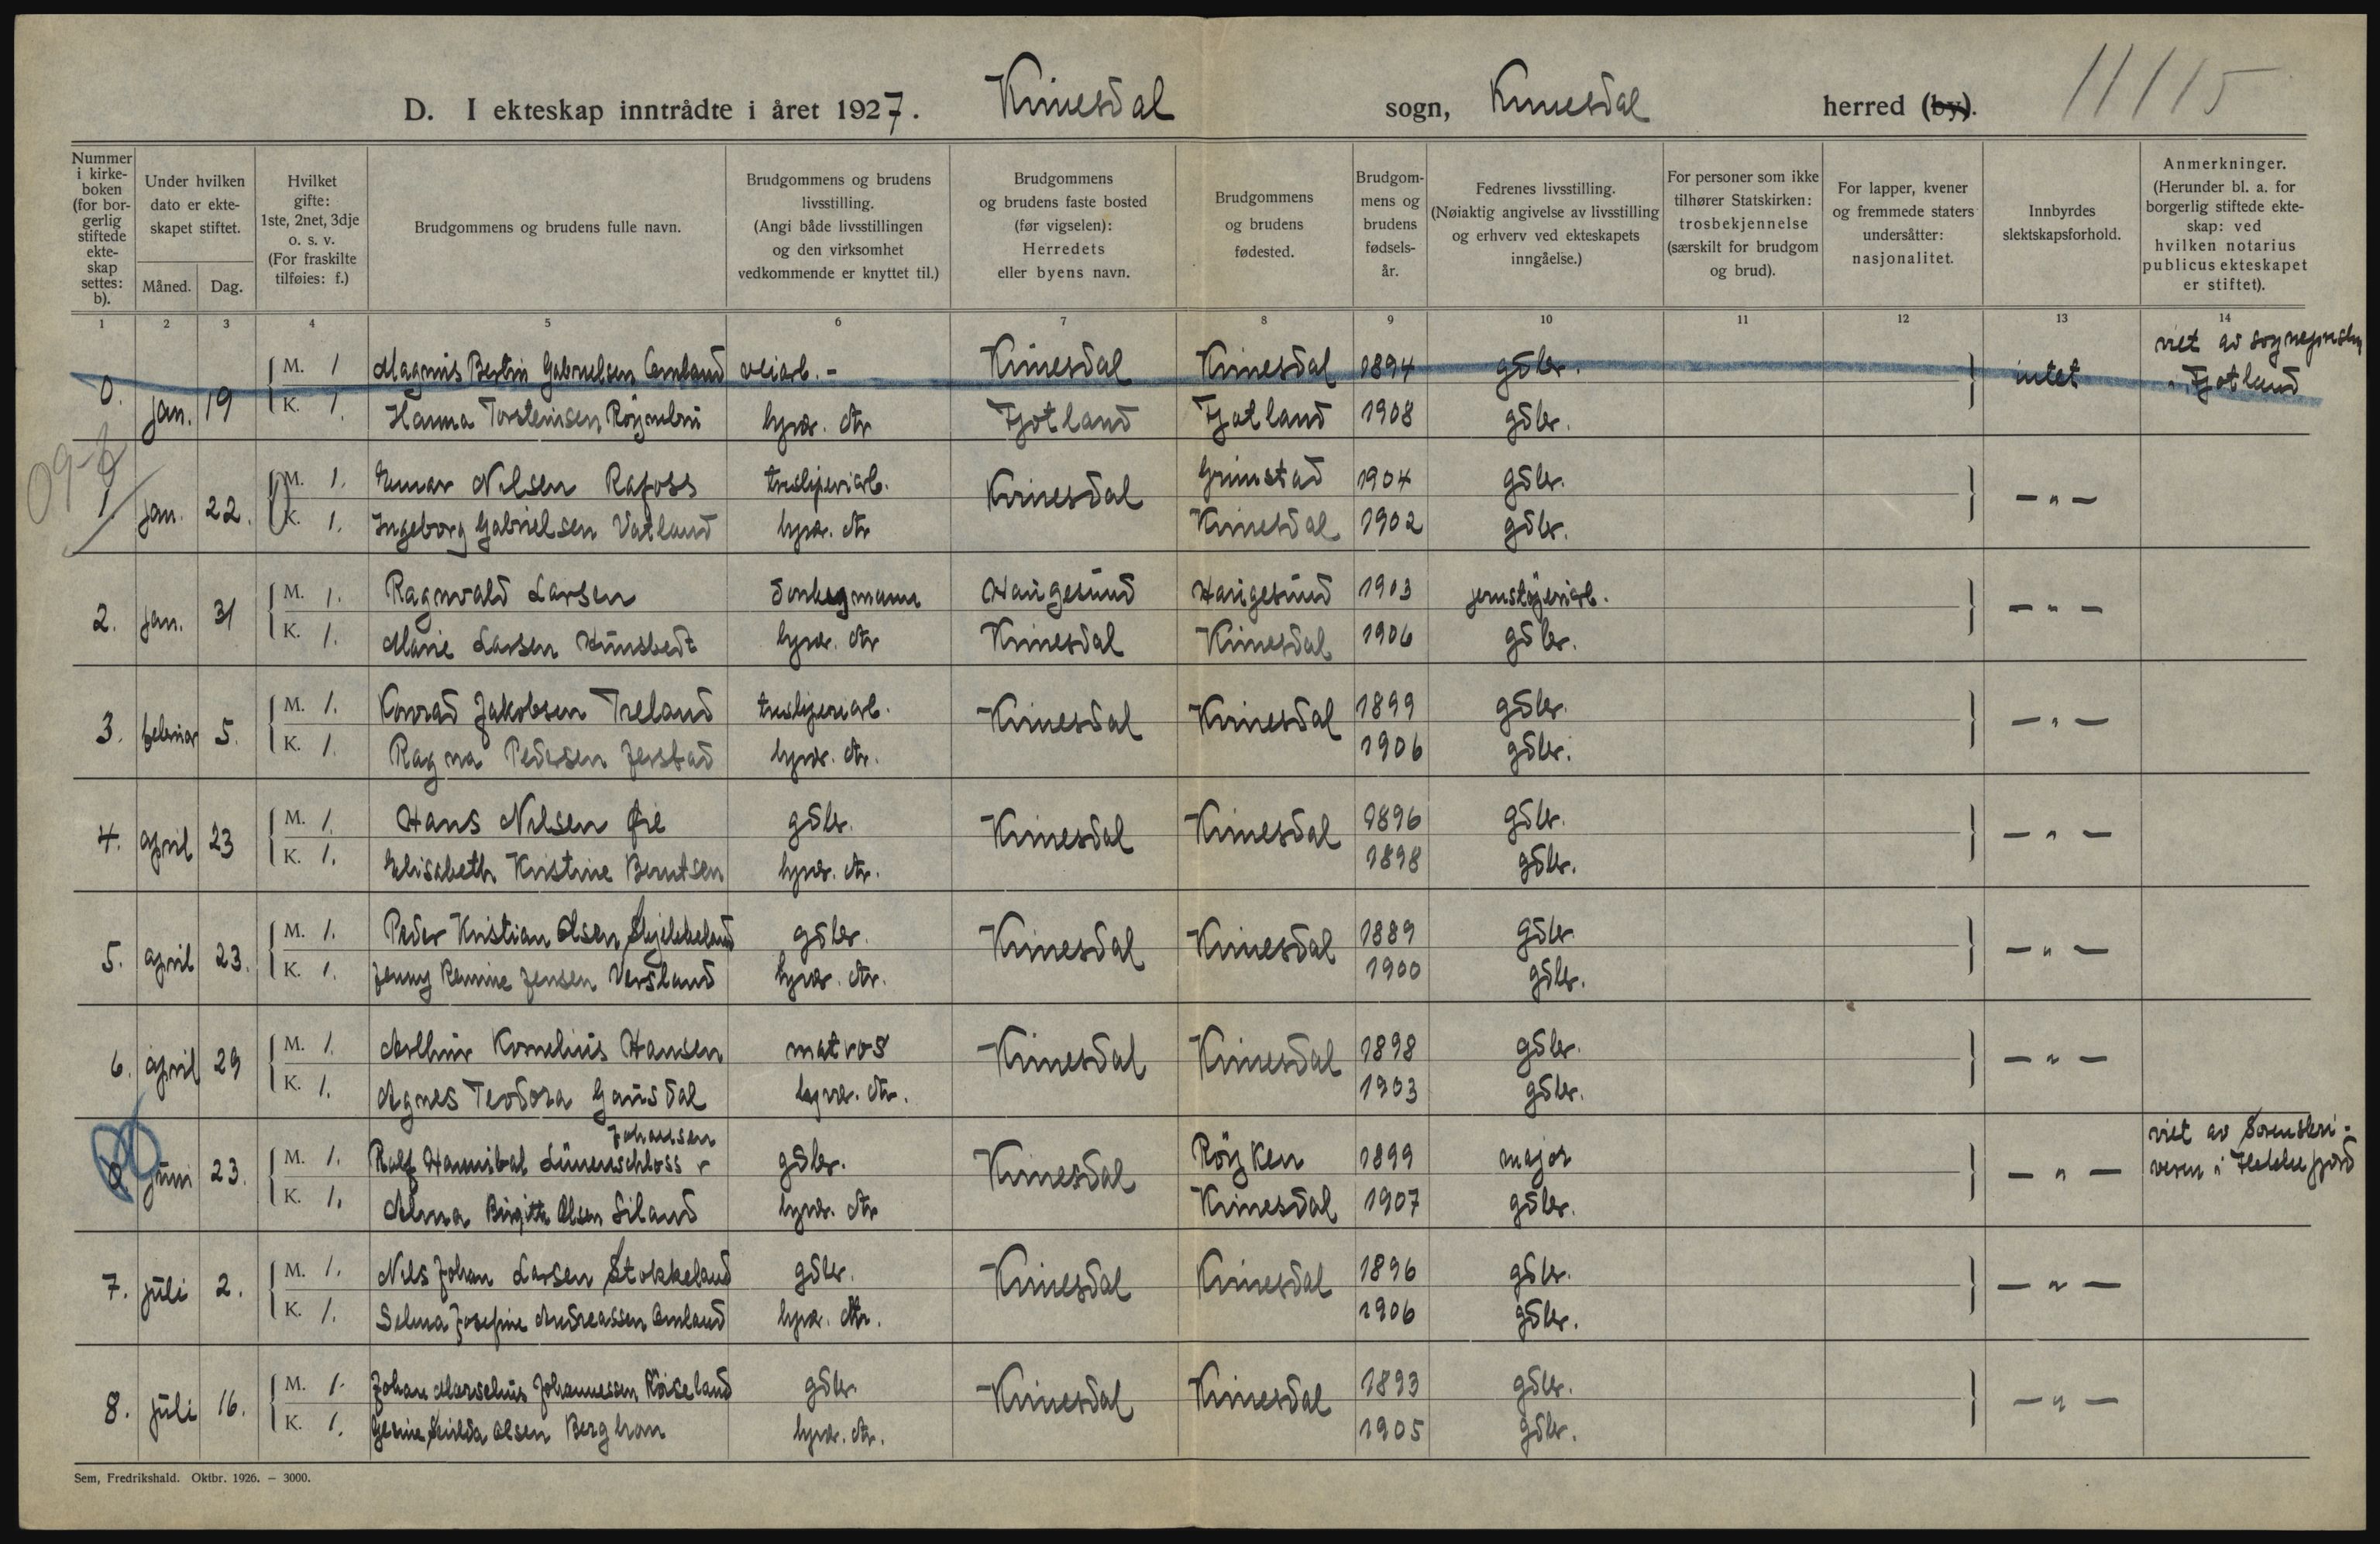 D. I ekteskap inntrådte i året 1927. Kvinesdal sogn, Kvinesdal herred (by). 11115
Nummer i kirke-boken (for bor-gerlig stiftede ekte-skap settes: b).
Under hvilken dato er ekte-skapet stiftet.
Måned. Dag.
Hvilket gifte: 1ste, 2net, 3dje o. s. v. (For fraskilte tilføies: f.)
Brudgommens og brudens fulle navn.
Brudgommens og brudens livsstilling. (Angi både livsstillingen og den virksomhet vedkommende er knyttet til.)
Brudgommens og brudens faste bosted (før vigselen): Herredets eller byens navn.
Brudgommens og brudens fødested.
Brudgom-mens og brudens fødsels-år.
Fedrenes livsstilling. (Nøiaktig angivelse av livsstilling og erhverv ved ekteskapets inngåelse.)
For personer som ikke tilhører Statskirken: trosbekjennelse (særskilt for brudgom og brud).
For lapper, kvener og fremmede staters undersåtter: nasjonalitet.
Innbyrdes slektskapsforhold.
Anmerkninger. (Herunder bl. a. for borgerlig stiftede ekte-skap: ved hvilken notarius publicus ekteskapet er stiftet).
1 2 3 4 5 6 7 8 9 10 11 12 13 14
0. jan. 19 M. 1 Magnus Bertin Gabrielsen Omland veiarb. - Kvinesdal Kvinesdal 1894 gdbr. intet viet av sognepresten i Fjotland
K. 1. Hanna Torsteinsen Røynebru hjvær. dtr Fjotland Fjotland 1908 gdbr.
09-2
1. jan. 22. M. 1. Einar Nilsen Rafoss tresliperiarb. Kvinesdal Grimstad 1904 gdbr. - " -
K. 1. Ingeborg Gabrielsen Vatland hjvær. dtr Kvinesdal 1902 gdbr.
2. jan. 31 M. 1. Ragnvald Larsen Haugesund Haugesund 1903 - " -
K. 1. Marie Larsen hjvær. dtr Kvinesdal Kvinesdal 1906 gdbr.
3. februar 5. M. 1. Konrad Jakobsen Treland tresliperiarb. Kvinesdal Kvinesdal 1899 gdbr. - " -
K. 1. Ragna Pedersen Jerstad hjvær. dtr. 1906 gdbr.
4. april 23 M. 1. Hans Nilsen Øie gdbr. Kvinesdal Kvinesdal 1896 gdbr. - " -
K. 1. Elisabeth Kristine Berntsen hjvær. dtr. 1898 gdbr.
5. april 23. M. 1. Peder Kristian Olsen Skjekkeland gdbr. Kvinesdal Kvinesdal 1889 gdbr. - " -
K. 1. Jenny Remine Jensen Versland hjvær. dtr. 1900 gdbr.
6. april 29 M. 1. Arthur Kornelius Hansen matros Kvinesdal Kvinesdal 1898 gdbr. - " -
K. 1. Agnes Teodora Gausdal hjvær. dtr. 1903 gdbr.
juni 23. M. 1. Rolf Hannibal Lünenschloss Johansen gdbr. Kvinesdal Røyken 1899 major - " - viet av Sorenskri-veren i Flekkefjord
K. 1. Alma Birgitte Olsen Liland hjvær. dtr Kvinesdal 1907 gdbr.
7. juli 2. M. 1. Nils Johan Larsen Stokkeland gdbr. Kvinesdal Kvinesdal 1896 gdbr. - " -
K. 1. Selma Josefine Andreassen Omland hjvær. dtr. 1906 gdbr.
8. juli 16. M. 1. Johan Marselius Johannessen Røiseland gdbr. Kvinesdal Kvinesdal 1893 gdbr. - " -
K. 1. Olsen hjvær. dtr. 1905 gdbr.
Sem, Fredrikshald. Oktbr. 1926. – 3000.